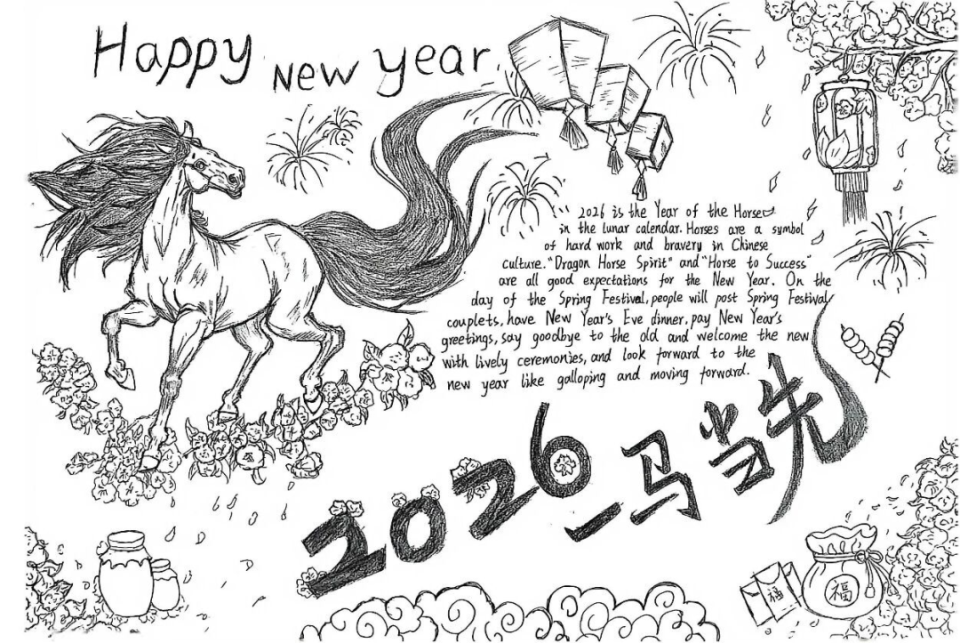 Happy New year
2026 is the Year of the Horse
in the lunar calendar. Horses are a symbol
of hard work and bravery in Chinese
culture. "Dragon Horse Spirit" and "Horse to Success"
are all good expectations for the New Year. On the
day of the Spring Festival, people will post Spring Festival
couplets, have New Year's Eve dinner, pay New Year's
greetings, say goodbye to the old and welcome the new
with lively ceremonies, and look forward to the
new year like galloping and moving forward.
2026一马当先
福
福